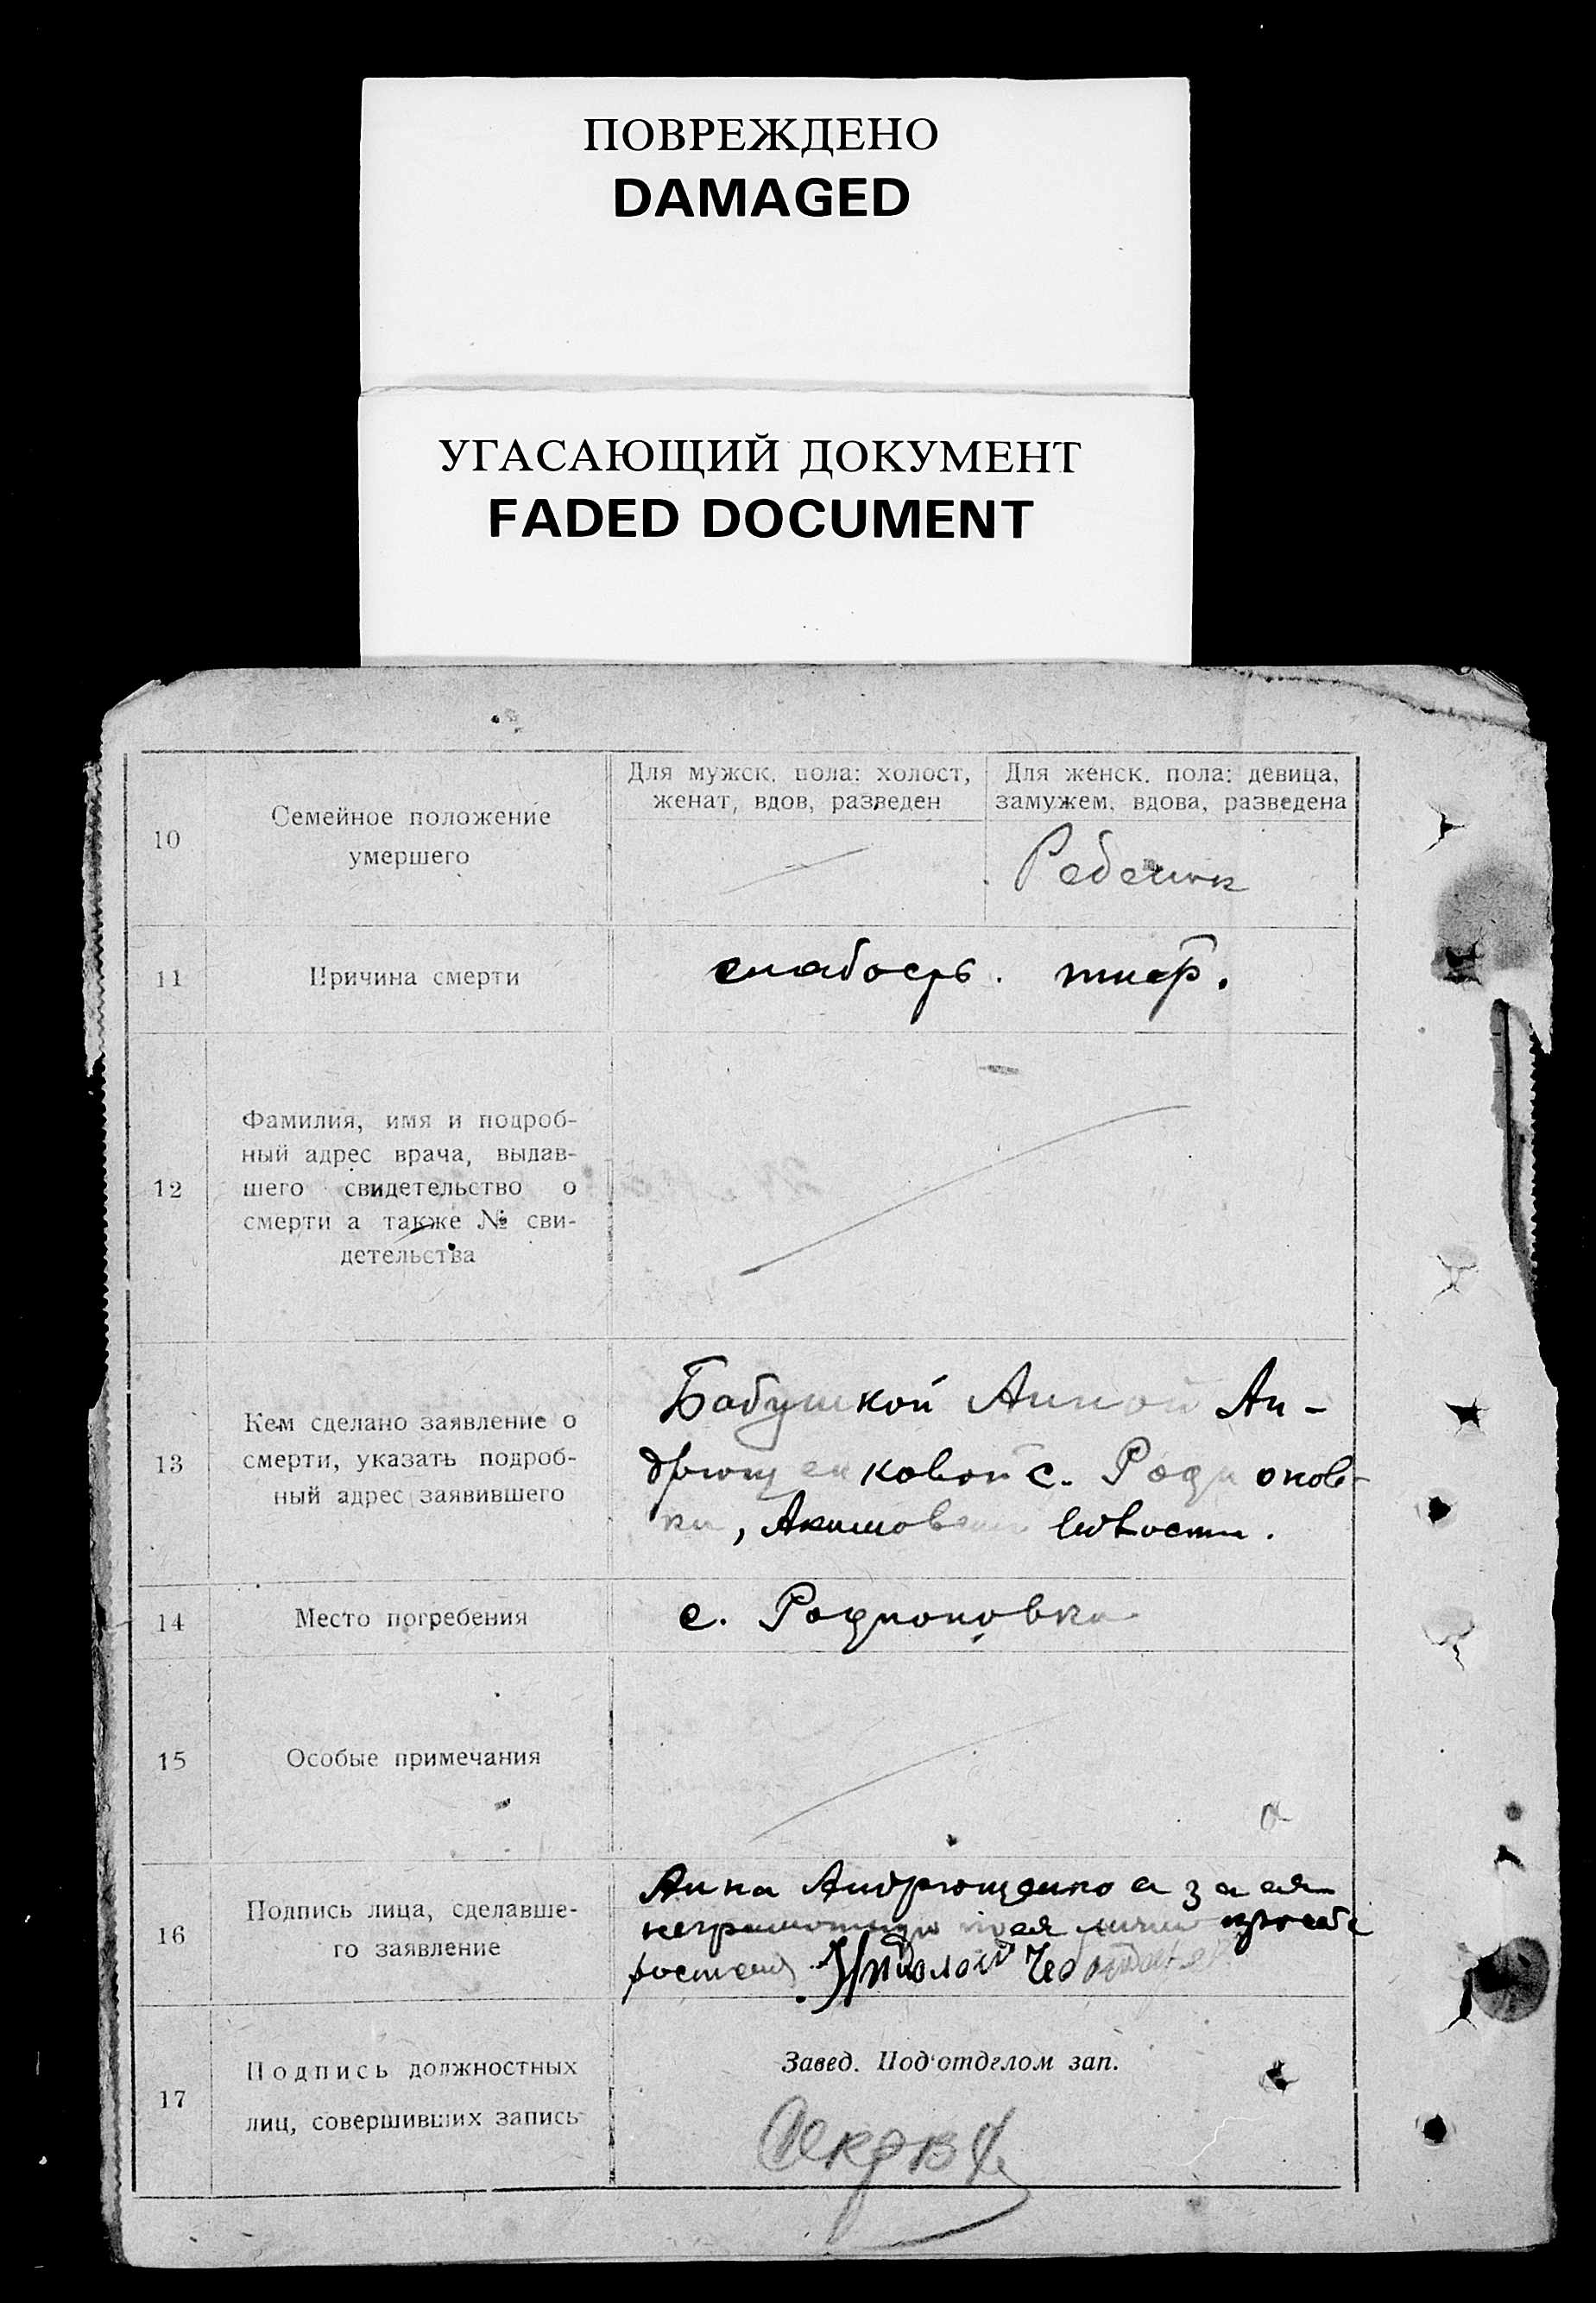 ПОВРЕЖДЕНО
DAMAGED
УГАСАЮЩИЙ ДОКУМЕНТ
FADED DOCUMENT
10
Семейное положение
умершего
Для мужск. пола: холост,
женат, вдов, разведен
Для женск. пола: девица,
замужем, вдова, разведена
Ребенок
11
Причина смерти
слабость.
12
Фамилия, имя и подроб-
ный адрес врача, выдав-
шего свидетельство о
смерти а также № сви-
детельства
13
Кем сделано заявление о
смерти, указать подроб-
ный адрес заявившего
Бабушкой Анной Ан-
дрющенковой с. Родионов-
ки, Акимовской волости.
14
Место погребения
с. Родионовка
15
Особые примечания
16
Подпись лица, сделавше-
го заявление
Анна Андрющенко а за ея
неграмотную
17
Подпись должностных
лиц, совершивших запись
Завед. Под'отделом зап.